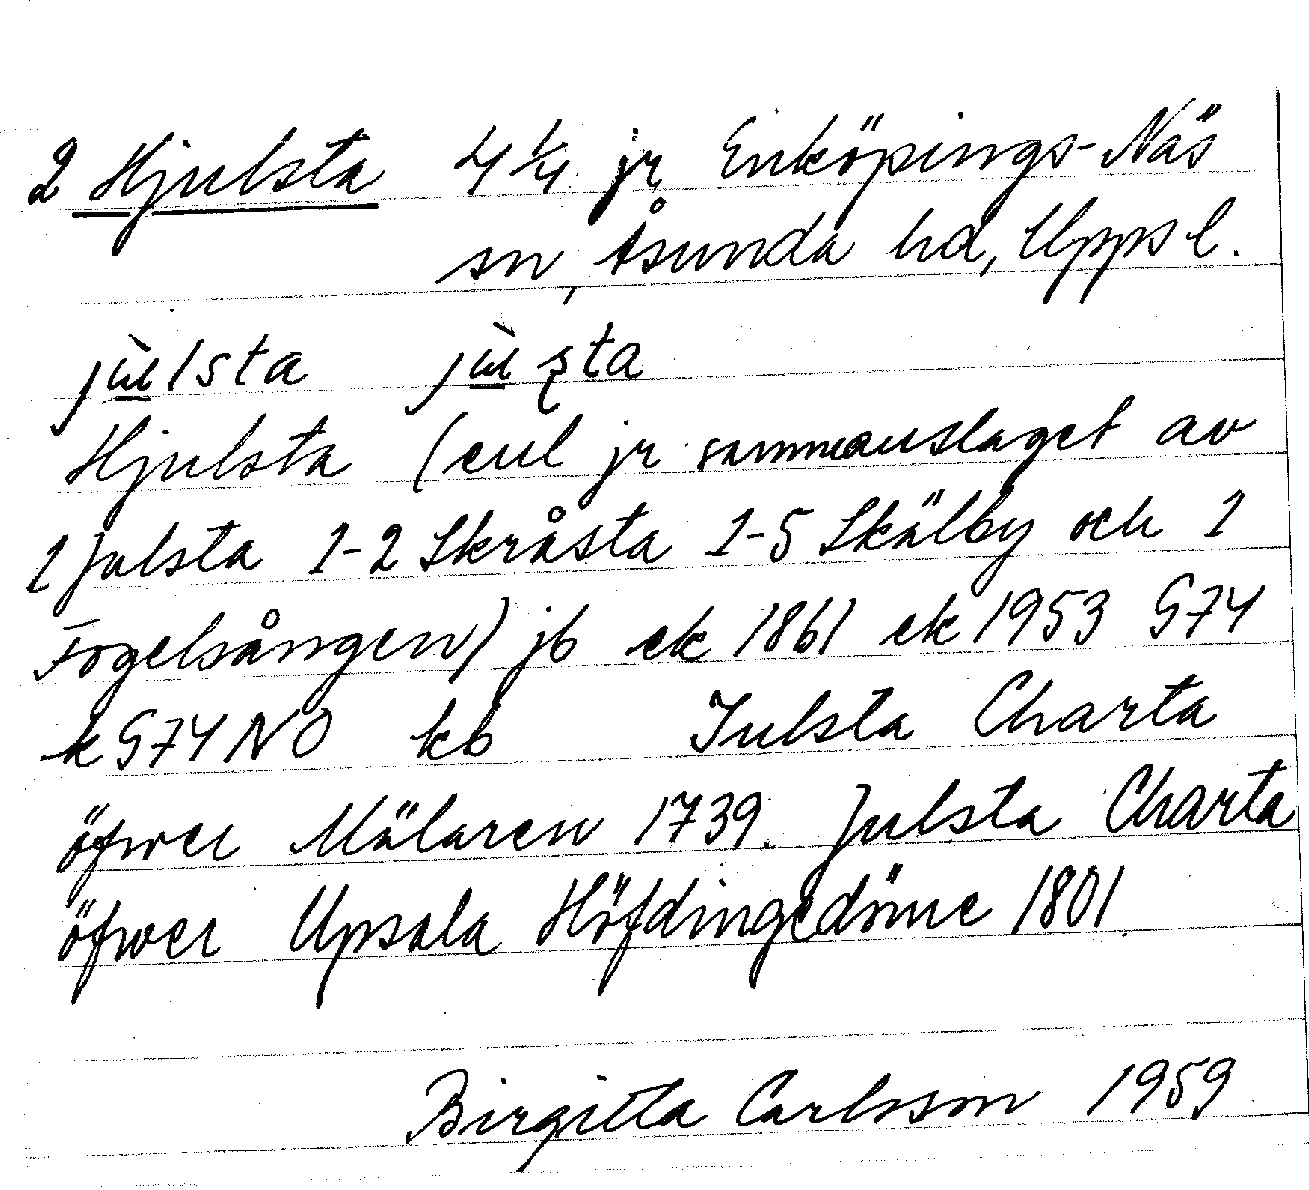 2 Hjulsta 4 1/4 jr Enköpings-Näs
sn, Åsunda hd, Upps l.
jùlsta jùʂta
Hjulsta (enl jr sammanslaget av
1 Julsta 1-2 Skråsta 1-5 Skälby och 1
Fogelsången) jb ek 1861 ek 1953 974
k 974 NO kb Julsta Charta
öfwer Mälaren 1739. Julsta Charta
öfwer Upsala Höfdingedöme 1801.
Birgitta Carlsson 1959